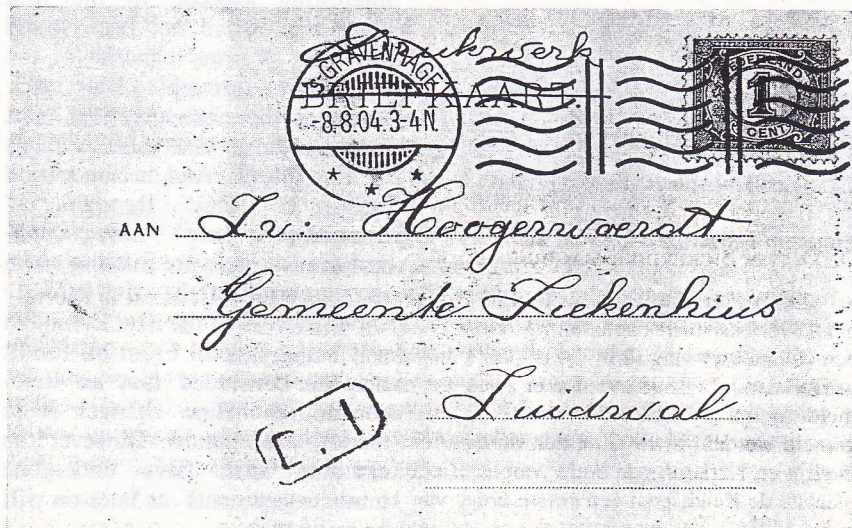 Drukwerk
'S GRAVENHAGE
BRIEFKAART.
8.8.04.3-4N.
NEDERLAND
1
CENT
AAN Zr: Hoogerwoerdt
Gemeente Ziekenhuis
Zuidwal
C. 1